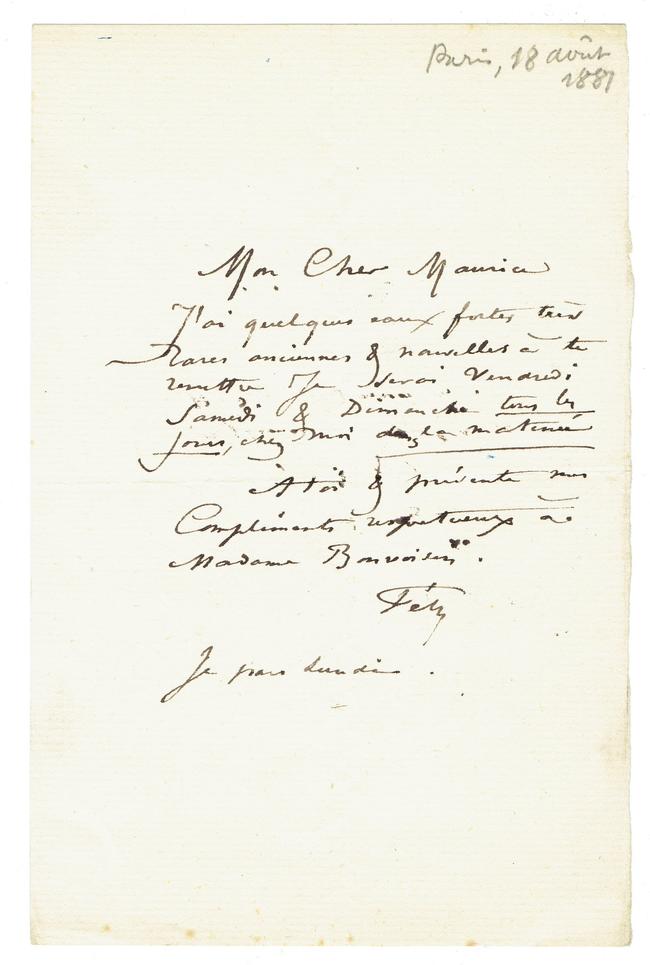 Paris, 18 août
1881
Mon Cher Maurice
J'ai quelques eaux fortes très
Rares anciennes & nouvelles à te
remettre Je serai Vendredi
Samedi & Dimanche tous les
jours, chez moi dans la matinée
A toi & présente mes
Compliments respectueux à
Madame Bonvoisin.
Fély
Je pars Lundi.